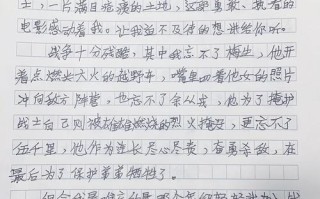 士，一片满目疮痍的土地，这部勇敢、执着的
电影感动着我。让我迫不及待的想讲给你听。
战争十分残酷，其中我忘不了梅生，他开
着点燃火的越野车，嘴里叼着他女的照片
冲向敌方阵营，也忘不了余从戎，他为了掩护
战士自己则被燃烧的烈火掩没，更忘不了
伍千里，他作为连长尽心尽责，奋勇杀敌，在
最后为了保护弟弟牺牲了。